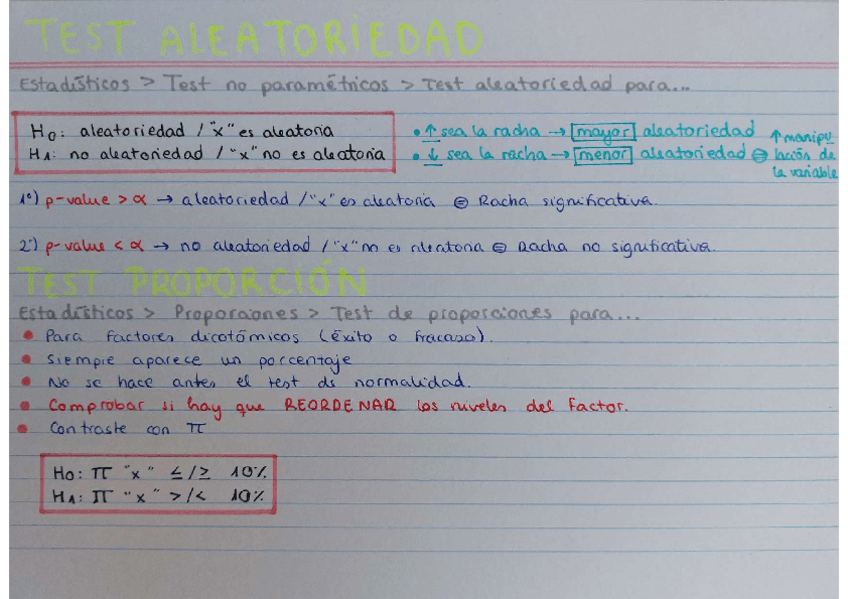 TEST ALEATORIEDAD
Estadísticos > Test no paramétricos > Test aleatoriedad para...
H0: aleatoriedad / "x" es aleatoria
H1: no aleatoriedad / "x" no es aleatoria
• ↑ sea la racha → mayor aleatoriedad
• ↓ sea la racha → menor aleatoriedad ⊜ ↑ manipu
lación de
la variable
1º) p-value > α → aleatoriedad / "x" es aleatoria ⊜ Racha significativa.
2º) p-value < α → no aleatoriedad / "x" no es aleatoria ⊜ Racha no significativa.
TEST PROPORCIÓN
Estadísticos > Proporciones > Test de proporciones para...
• Para factores dicotómicos (éxito o fracaso).
• Siempre aparece un porcentaje
• No se hace antes el test de normalidad.
• Comprobar si hay que REORDENAR los niveles del Factor.
• Contraste con π
H0: π "x" ≤/≥ 10%
H1: π "x" >/< 10%